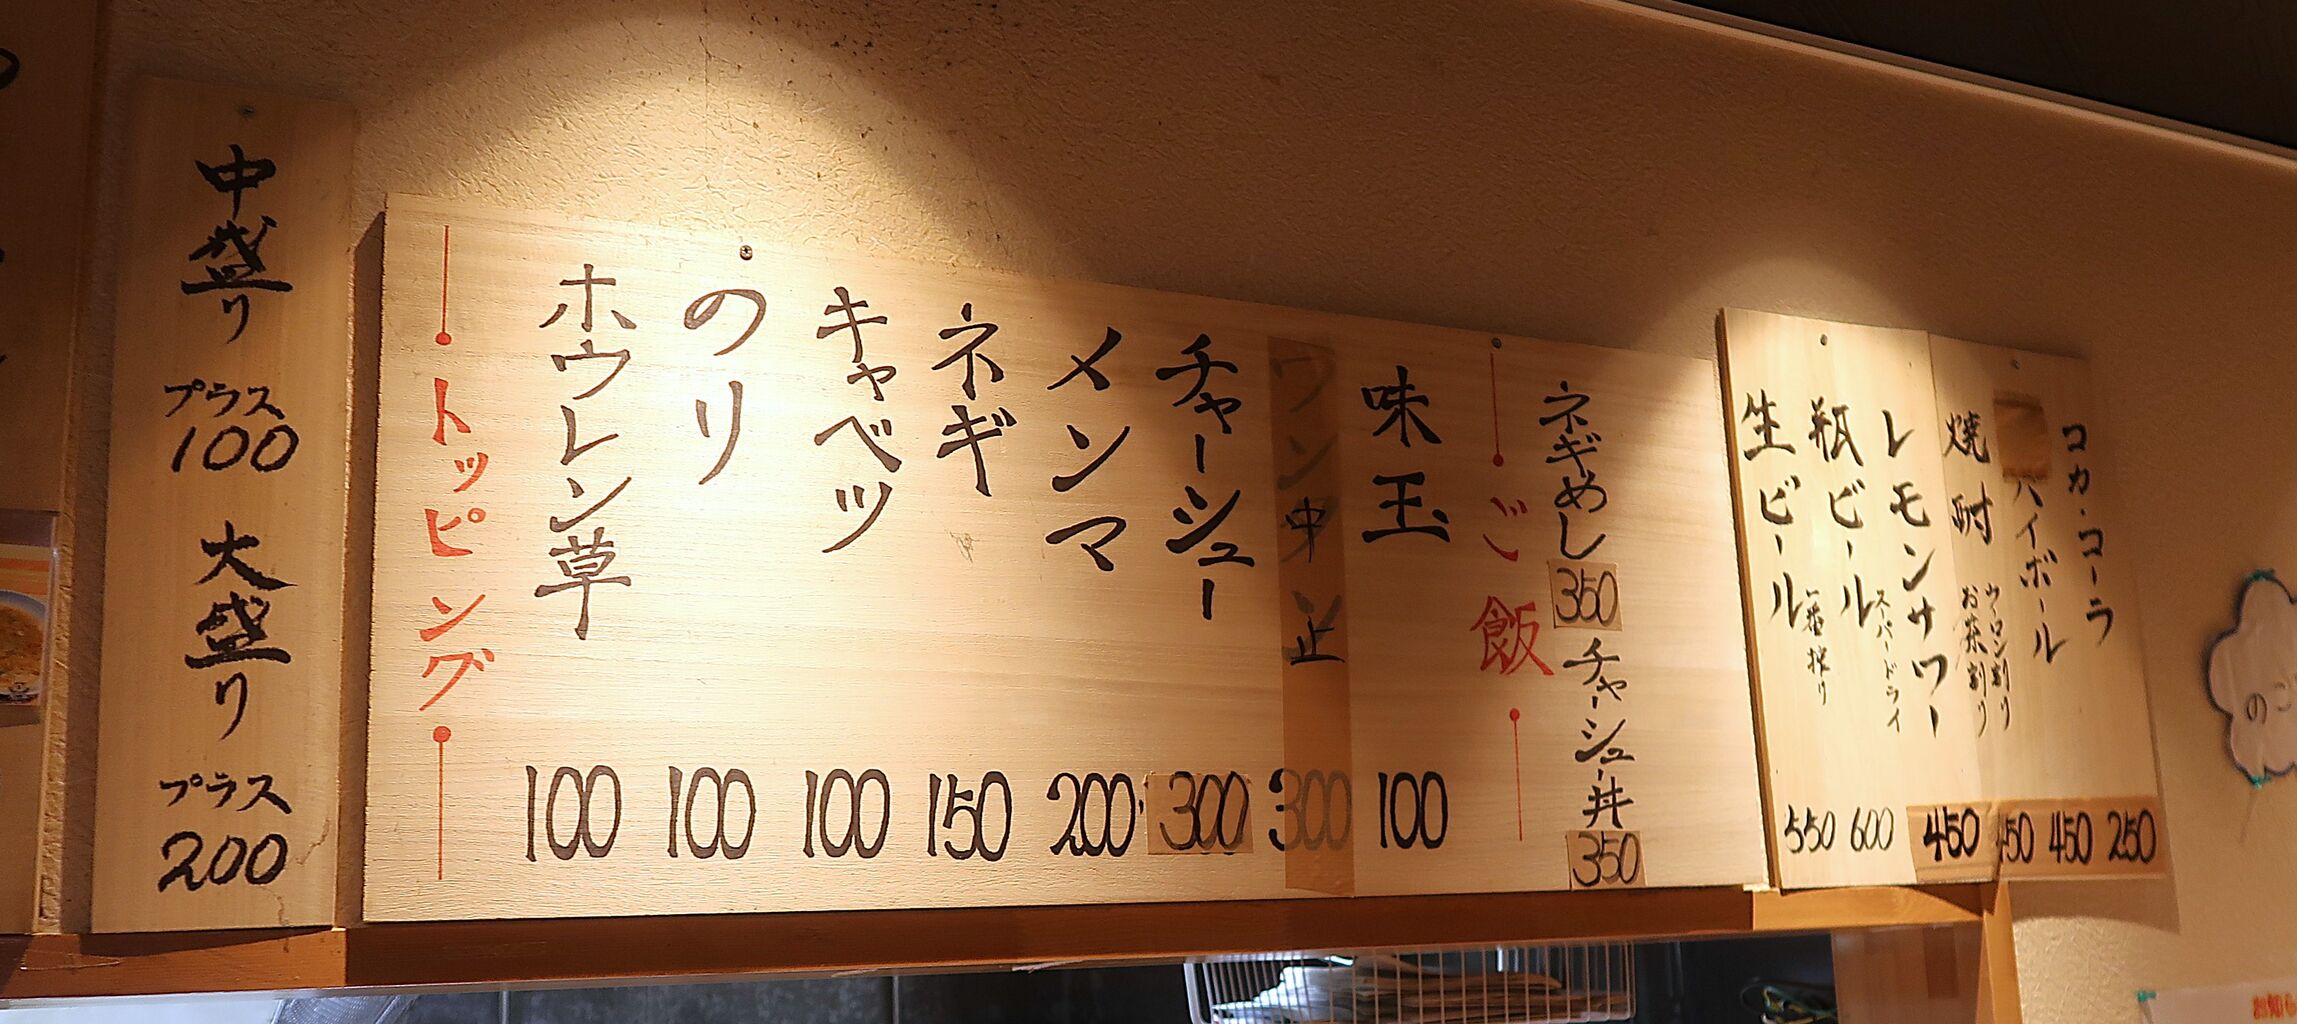 中盛り
プラス
100
大盛り
プラス
200
トッピング
ホウレン草 100
のり 100
キャベツ 100
ネギ 150
メンマ 200
チャーシュー 300
ワンタン中止 300
味玉 100
ご飯
ネギめし 350
チャーシュー丼 350
生ビール 一番搾り 550
瓶ビール スーパードライ 600
レモンサワー 450
焼酎 お茶割り ウーロン割り 450
ハイボール 450
コカ・コーラ 250
のご
お知ら